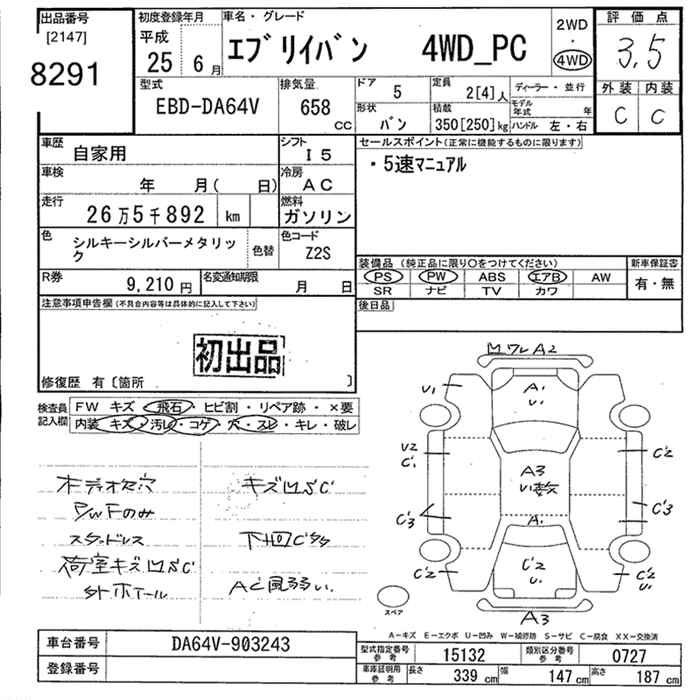 出品番号
[2147]
8291
初度登録年月
平成
25 6月
車名・グレード
エブリイバン 4WD_PC
2WD
・
4WD
評価点
3.5
外装 内装
C C
型式
EBD-DA64V
排気量
658 cc
ドア
5
形状
バン
定員
2[4]人
積載
350[250]kg
ディーラー・並行
モデル年式 年
ハンドル 左・右
車歴
自家用
シフト
I5
車検
年 月( 日)
冷房
AC
走行
26万5千892 km
燃料
ガソリン
色
シルキーシルバーメタリック
色替
色コード
Z2S
R券
9,210円
名変通知期限
月 日
セールスポイント(正常に機能するものに限ります)
・5速マニュアル
装備品 (純正品に限り○をつけてください)
PS PW ABS エアB AW
SR ナビ TV カワ
新車保証書
有・無
後日品
注意事項申告欄(不具合内容等は具体的に記入して下さい)
初出品
修復歴 有〔箇所 〕
検査員記入欄
FW キズ・飛石・ヒビ割・リペア跡・×要
内装 キズ・汚レ・コゲ・穴・スレ・キレ・破レ
オーディオ欠穴
P/WFのみ
スタッドレス
荷室キズ凹SC
外ホイール
キズ凹SC
下回C
AC風弱い
ワレ A2
U1
A1
U1
U2
C1
C2
A3
U数
C3
C3
A1
C2
C2
U1
C2
U1
A3
スペア
A-キズ E-エクボ U-凹み W-補修跡 S-サビ C-腐食 XX-交換済
車台番号
DA64V-903243
登録番号
型式指定番号 参考
15132
類別区分番号 参考
0727
車庫証明用 参考
長さ 339 cm
幅 147 cm
高さ 187 cm